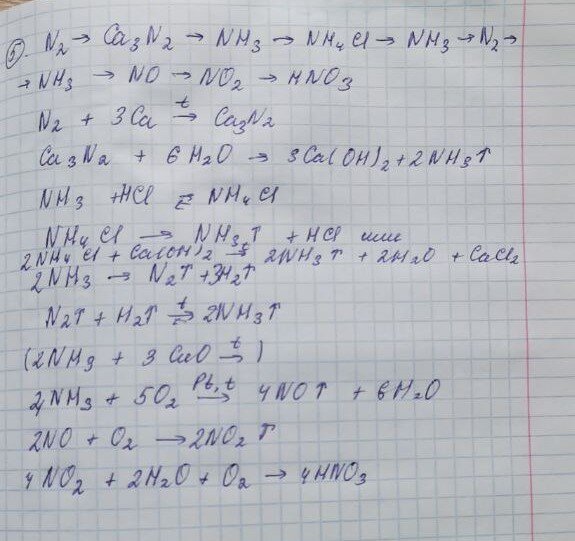 5. N₂ → Ca₃N₂ → NH₃ → NH₄Cl → NH₃ → N₂ →
→ NH₃ → NO → NO₂ → HNO₃
N₂ + 3Ca →(t) Ca₃N₂
Ca₃N₂ + 6H₂O → 3Ca(OH)₂ + 2NH₃↑
NH₃ + HCl ⇄ NH₄Cl
NH₄Cl → NH₃↑ + HCl или
2NH₄Cl + Ca(OH)₂ →(t) 2NH₃↑ + 2H₂O + CaCl₂
2NH₃ → N₂↑ + 3H₂↑
N₂↑ + H₂↑ ⇄(t) 2NH₃↑
(2NH₃ + 3CuO →(t) )
4NH₃ + 5O₂ →(Pt, t) 4NO↑ + 6H₂O
2NO + O₂ → 2NO₂↑
4NO₂ + 2H₂O + O₂ → 4HNO₃